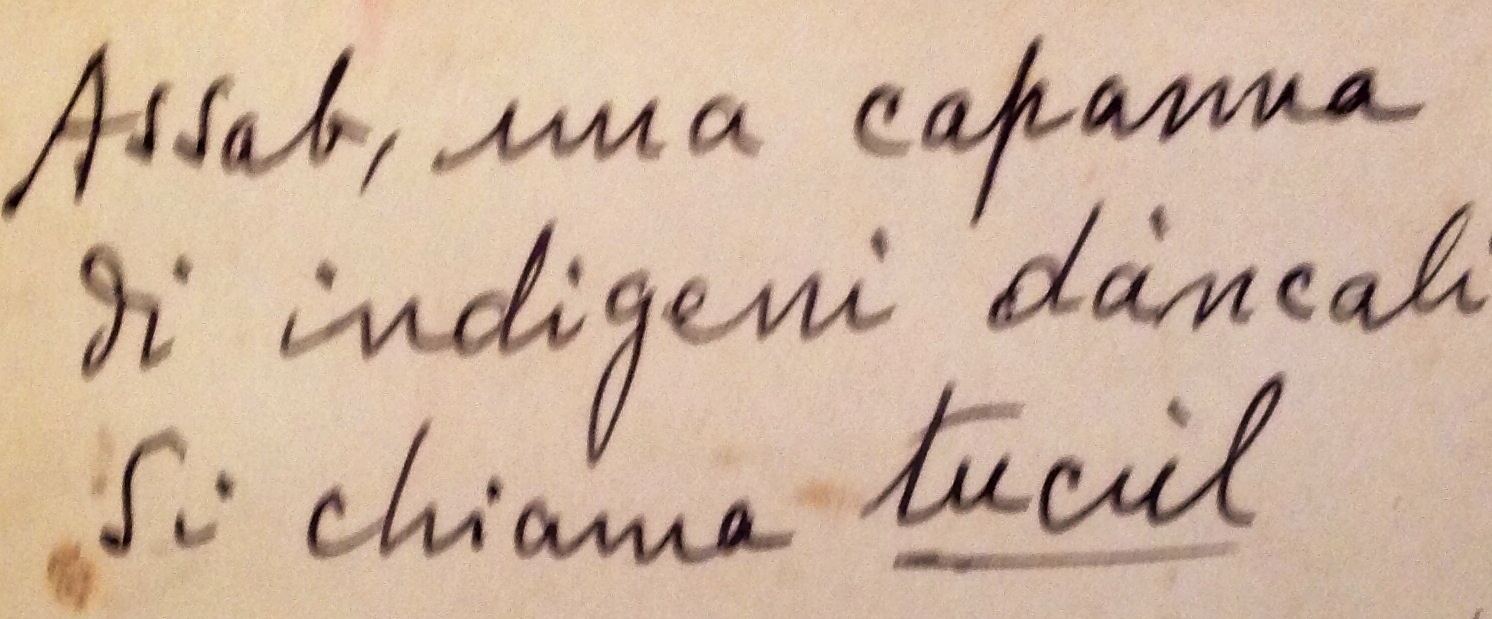 Assab, una capanna
di indigeni dàncali
Si chiama tucùl